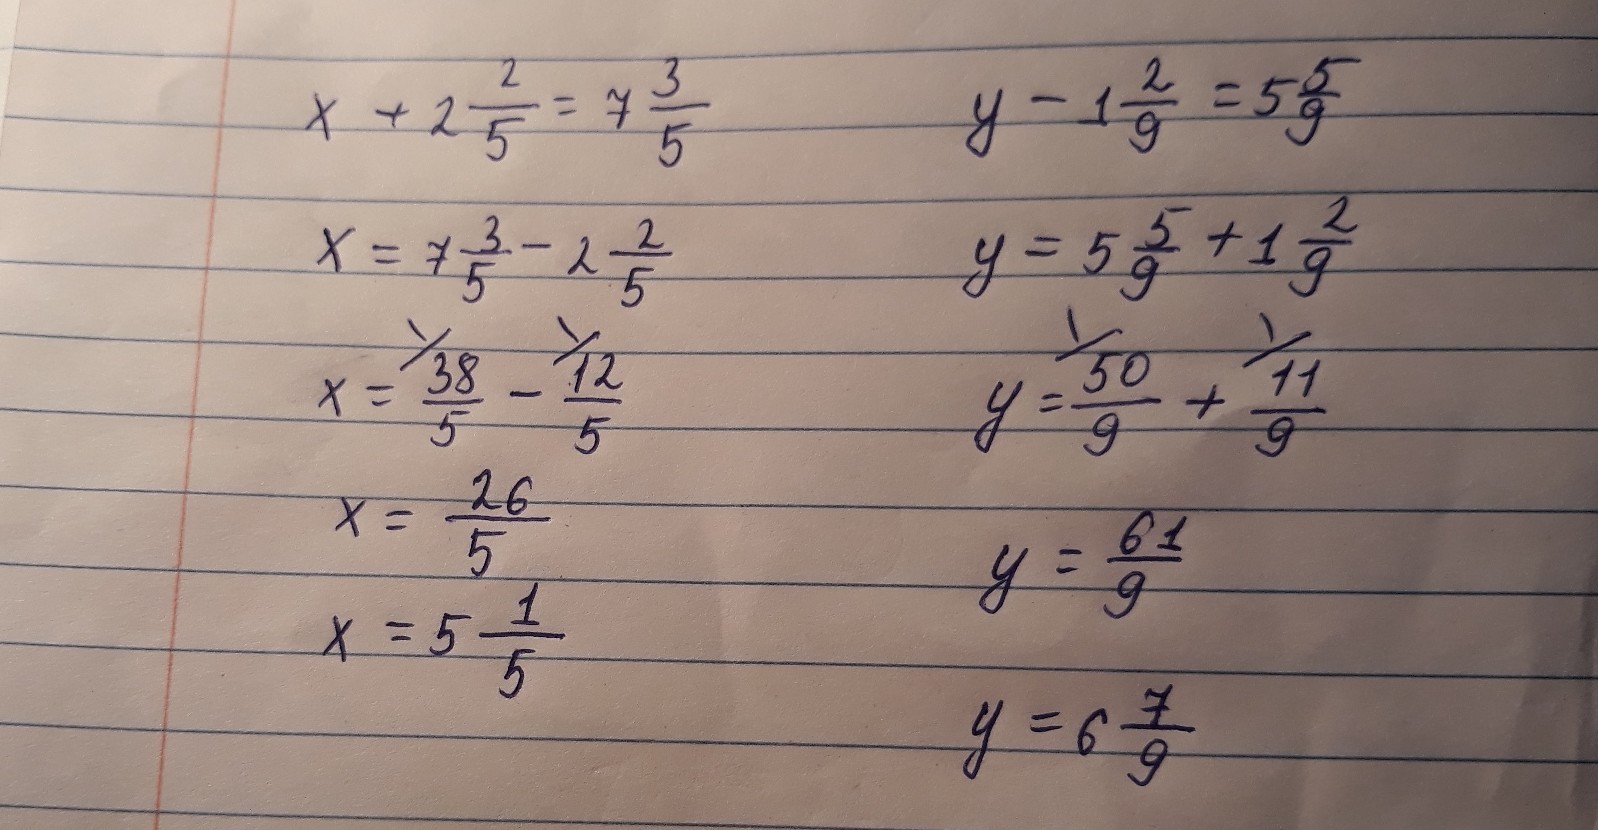 x + 2 2/5 = 7 3/5
x = 7 3/5 - 2 2/5
x = 1/ 38/5 - 1/ 12/5
x = 26/5
x = 5 1/5
y - 1 2/9 = 5 5/9
y = 5 5/9 + 1 2/9
y = 1/ 50/9 + 1/ 11/9
y = 61/9
y = 6 7/9